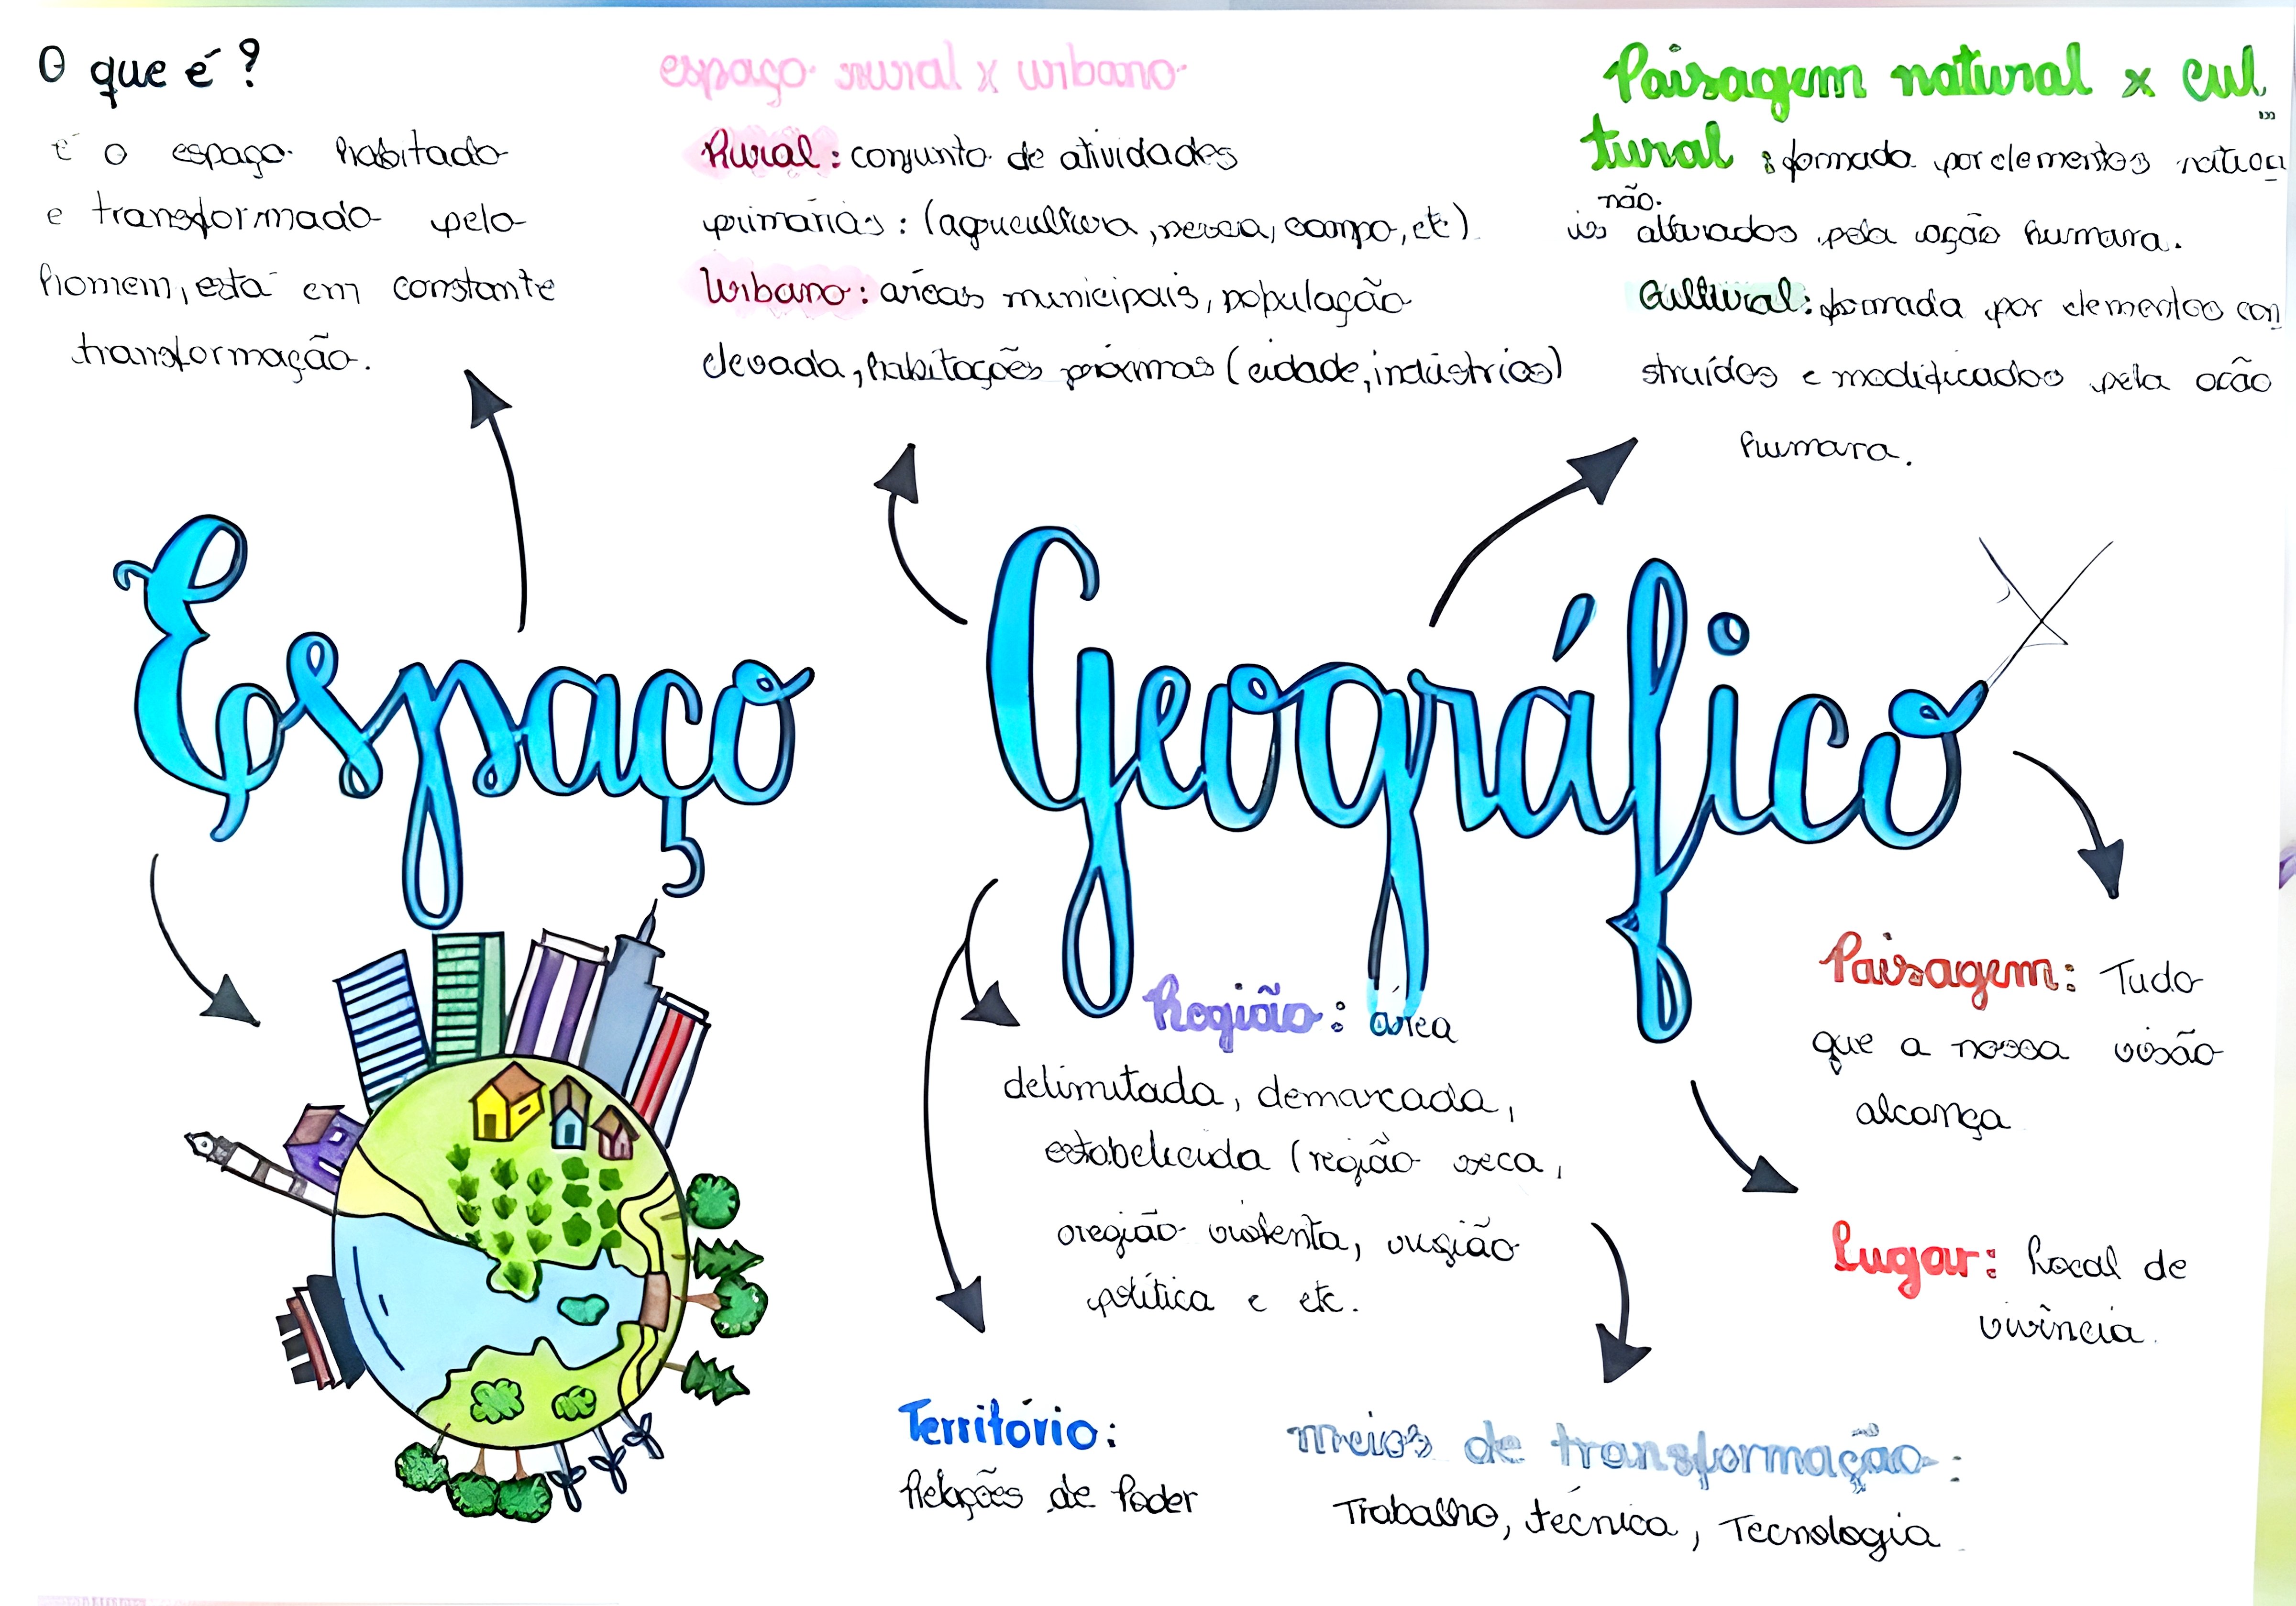 O que é?
é o espaço habitado
e transformado pelo
homem, está em constante
transformação.
espaço rural x urbano
Rural: conjunto de atividades
primárias: (agricultura, pesca, campo, etc)
Urbano: áreas municipais, população
elevada, habitações próximas (cidade, indústrias)
Paisagem natural x cul
tural: formada por elementos natura
não
is alterados pela ação humana.
Cultural: formada por elementos con
struídos e modificados pela ação
humana.
Espaço Geográfico
Região: área
delimitada, demarcada,
estabelecida (região seca,
região violenta, região
política e etc.
Paisagem: Tudo
que a nossa visão
alcança
Lugar: Local de
vivência.
Território:
Relações de Poder
meios de transformação:
Trabalho, técnica, Tecnologia